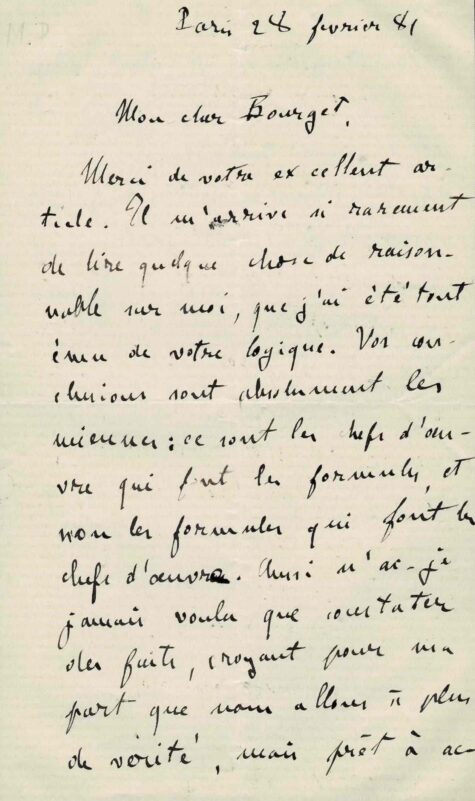 Paris 28 fevrier 81
Mon cher Bourget,
Merci de votre excellent ar-
ticle. Il m'arrive si rarement
de lire quelque chose de raison-
nable sur moi, que j'ai été tout
ému de votre logique. Vos con-
clusions sont absolument les
miennes : ce sont les chefs d'œu-
vre qui font les formules, et
non les formules qui font les
chefs d'œuvre. Aussi n'ai-je
jamais voulu que constater
des faits, croyant pour ma
part que nous allons à plus
de vérité, mais prêt à ac-